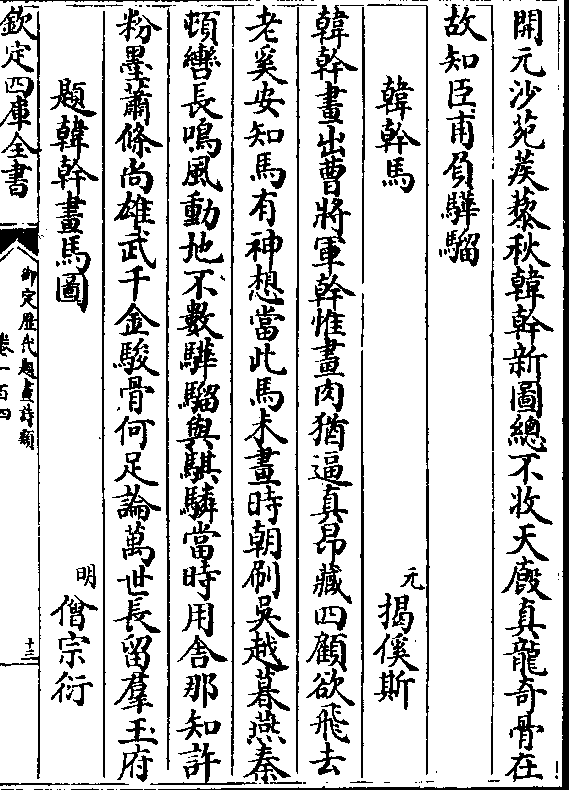 開元沙苑蒺藜秋韓幹新圖總不收天廐真龍奇骨在
故知臣甫負驊騮
韓幹馬 元 揭傒斯
韓幹畫出曹將軍幹惟畫肉猶逼真昂藏四顧欲飛去
老奚安知馬有神想當此馬未畫時朝刷吳越暮燕秦
頓轡長鳴風動地不數驊騮與騏驎當時用舍那知許
粉墨蕭條尚雄武千金駿骨何足論萬世長留羣玉府
題韓幹畫馬圖 明 僧宗衍
欽定四庫全書
御定歷代題畫詩類
卷一百四
十三